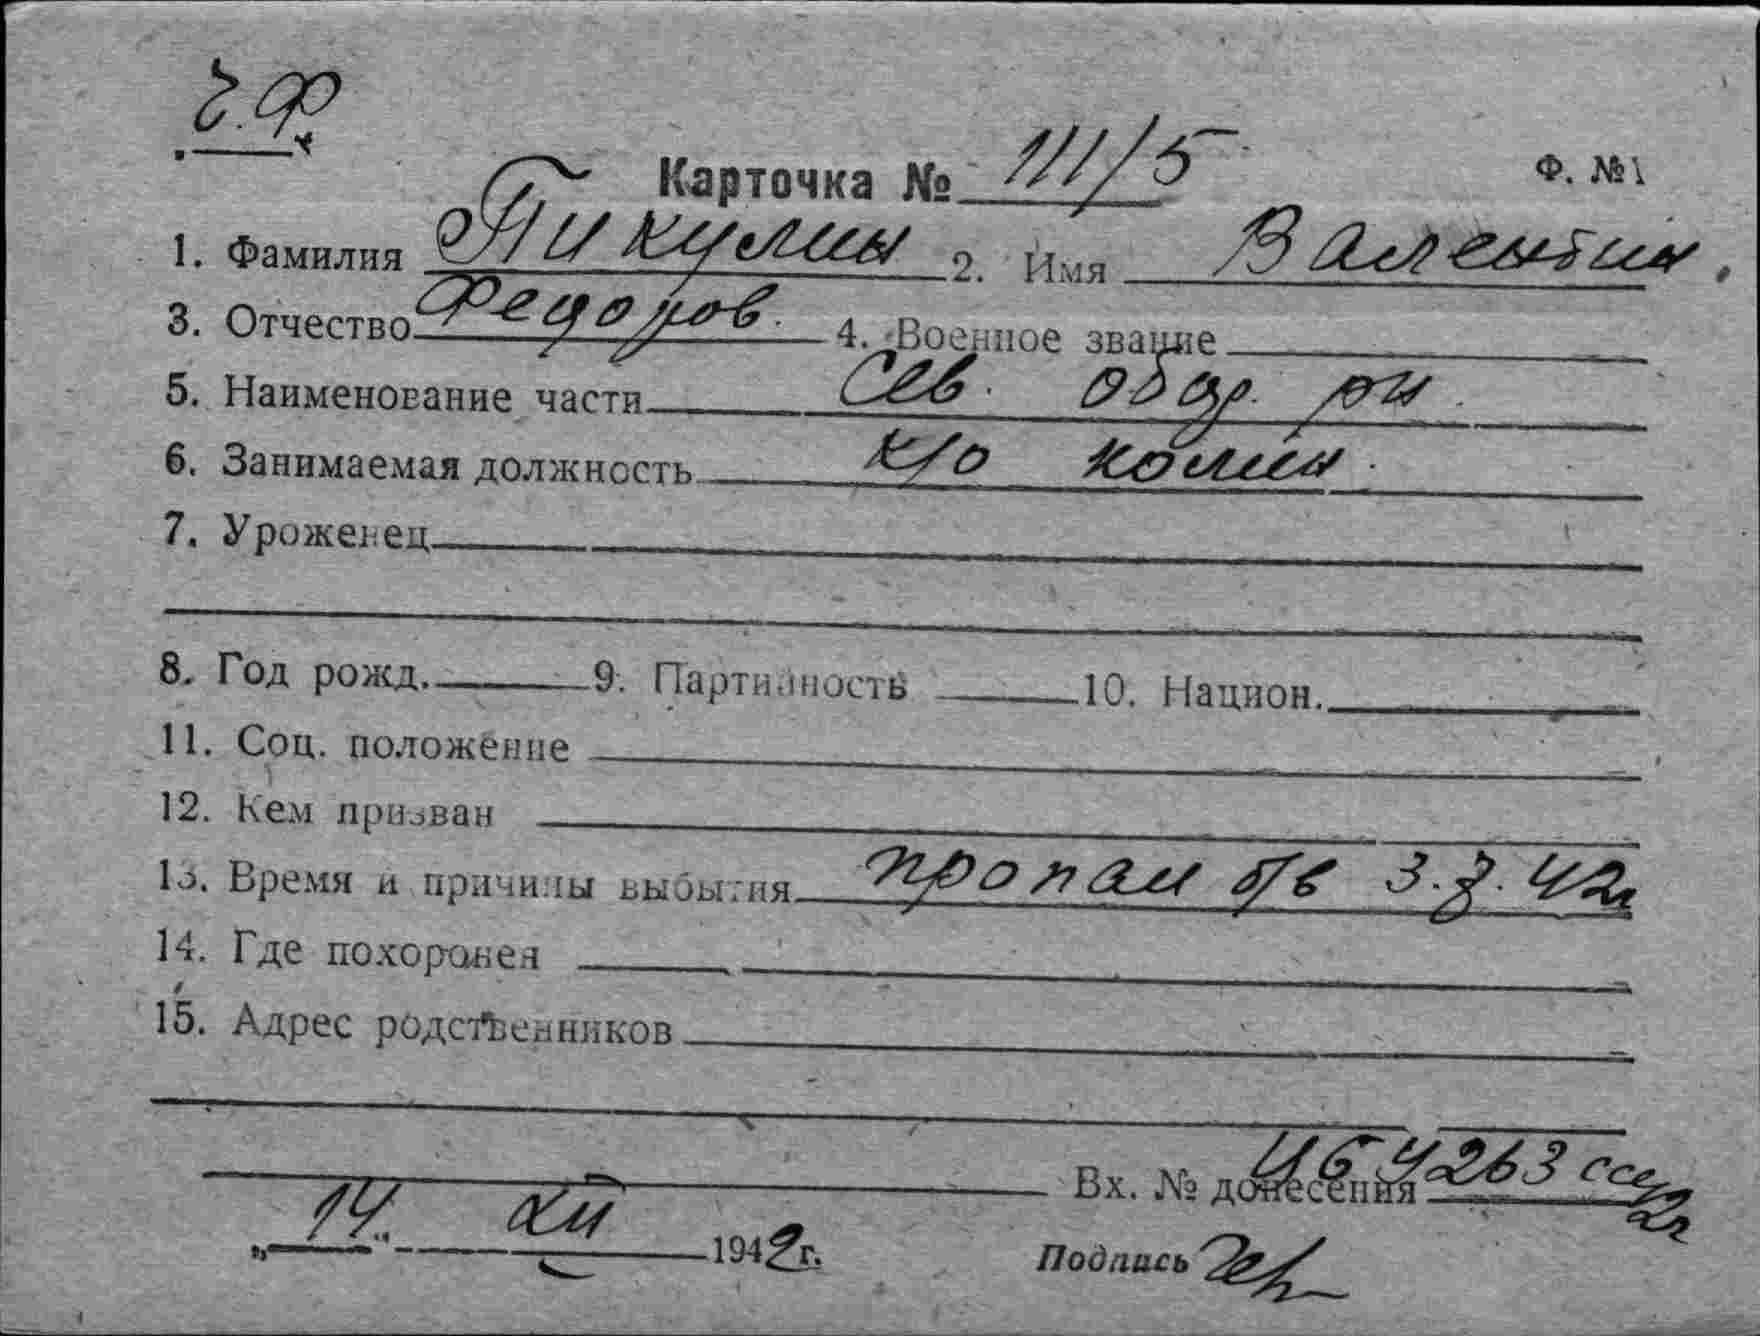 Ч.Ф
Карточка № 111/5 Ф. №1
1. Фамилия Пикулин 2. Имя Валентин.
3. Отчество Федоров. 4. Военное звание
5. Наименование части Сев.
6. Занимаемая должность к/о
7. Уроженец
8. Год рожд. 9. Партийность 10. Национ.
11. Соц. положение
12. Кем призван
13. Время и причины выбытия пропал б/в 3.7.42г
14. Где похоронен
15. Адрес родственников
Вх. № донесения 4263
„14“ XII 1942г.
Подпись